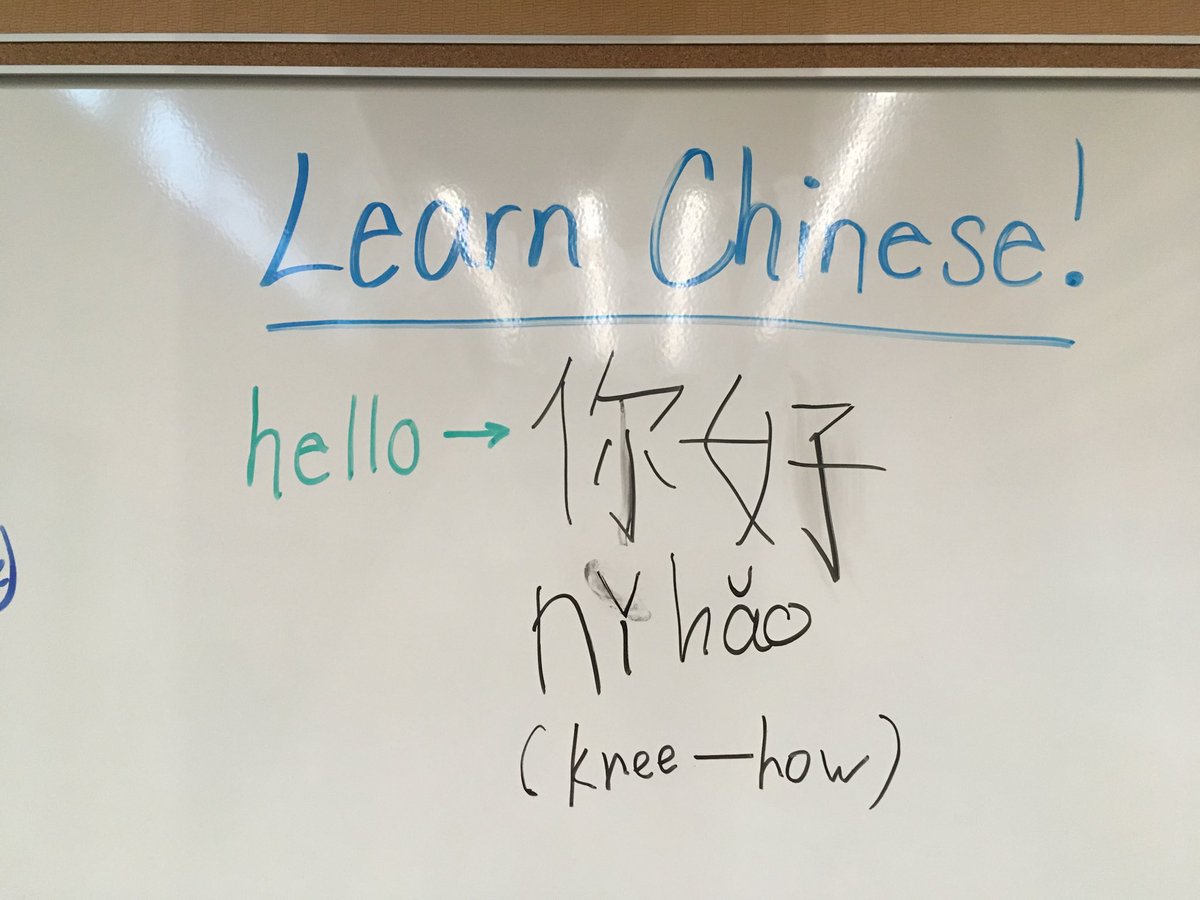 Learn Chinese!
hello → 你好
nǐ hǎo
(knee—how)